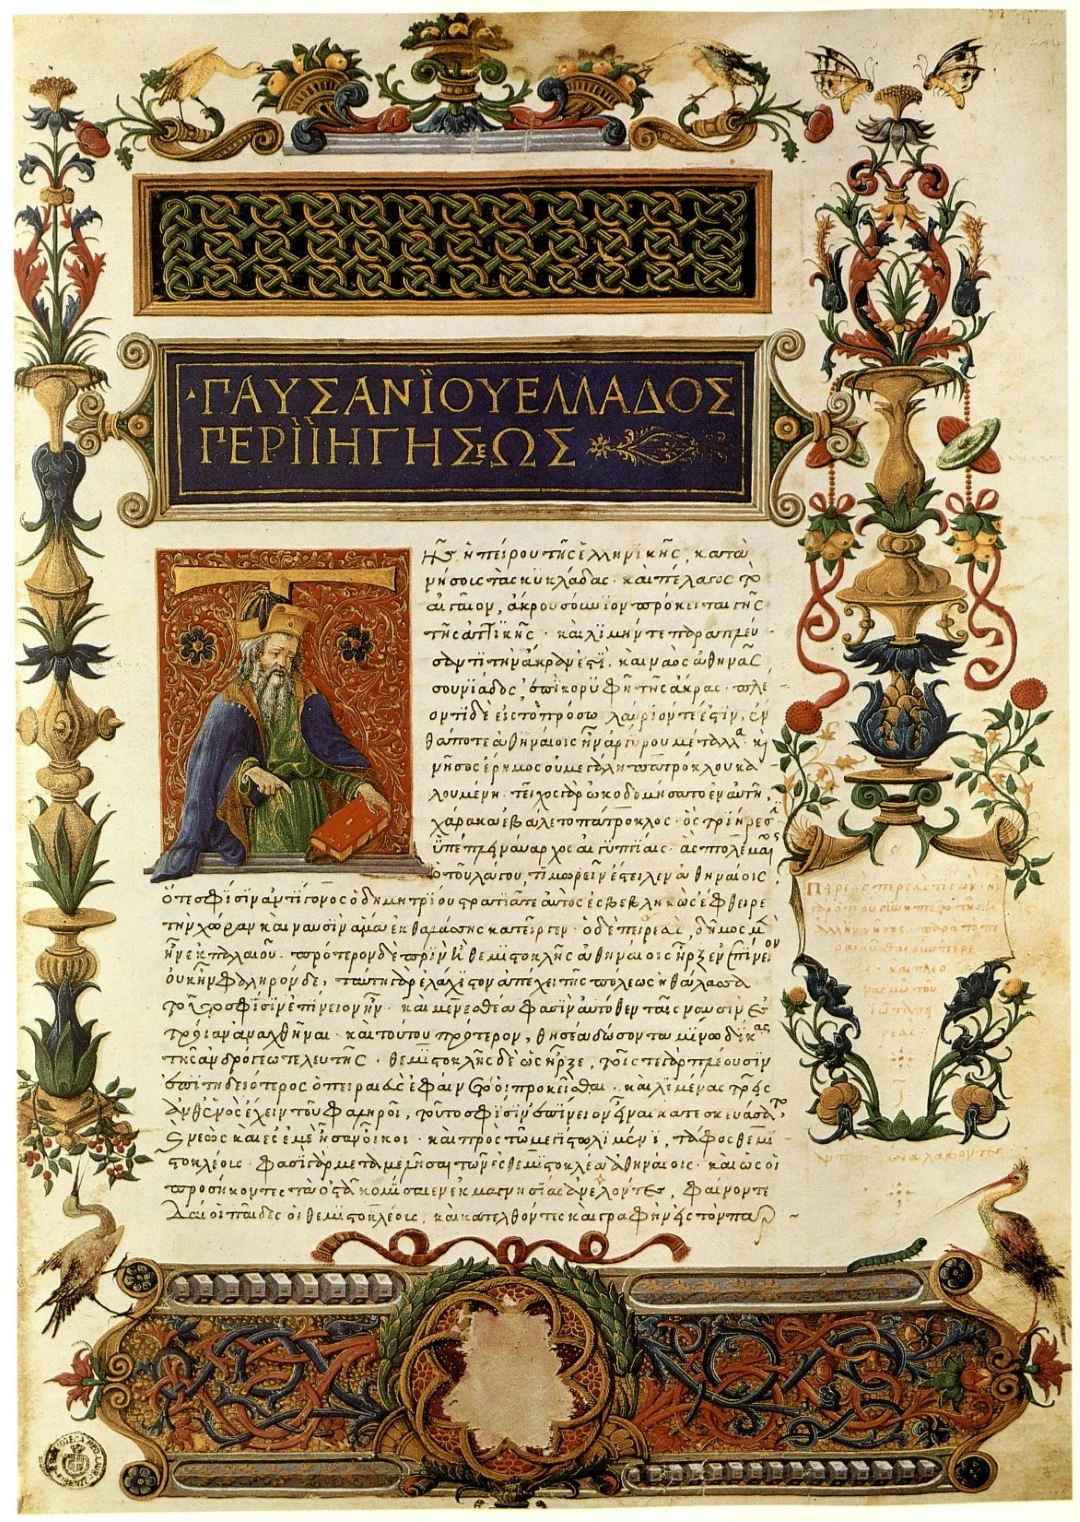 ·ΠΑΥΣΑΝΪΟΥ ΕΛΛΑΔΟΣ
ΠΕΡΙΪΗΓΗΣεΩΣ
Τῆς ἠπείρου τῆς ἑλληνικῆς, κατὰ
νήσοις τὰς κυκλάδας · καὶ πέλαγος τὸ
αἰγαῖον, ἄκρου σούνιον πρόκειται γῆς
τῆς ἀττικῆς · καὶ λιμήν τε παραπλεύ
σαντι τὴν ἄκραν ἐστί. καὶ ναὸς ἀθηνᾶς
σουνιάδος ἐπὶ κορυφῇ τῆς ἄκρας · πλέ
οντι δὲ ἐς τὸ πρόσω λαύριόν τε ἐστὶν, ἔν
θά ποτε ἀθηναίοις ἦν ἀργύρου μέταλλα καὶ
νῆσος ἔρημος οὐ μεγάλη πατρόκλου κα
λουμένη. τεῖχος γὰρ ὠκοδομήσατο ἐν αὐτῇ,
χάρακα ἐβάλετο πάτροκλος · ὃς τριήρεσιν
ὑπέπλει ναύαρχος αἰγυπτίαις · ἃς πτολεμαῖος
ὁ τοῦ λάγου, τιμωρεῖν ἔστειλεν ἀθηναίοις,
ὅτε σφίσιν ἀντίγονος ὁ δημητρίου στρατιᾷ τε αὐτὸς ἐσβεβληκὼς ἔφθειρε
τὴν χώραν καὶ ναυσὶν ἅμα ἐκ θαλάσσης κατεῖργεν · ὁ δὲ πειραιεὺς, δῆμος μὲν
ἦν ἐκ παλαιοῦ · πρότερον δὲ πρὶν ἢ θεμιστοκλῆς ἀθηναίοις ἦρξεν ἐπίνειον
οὐκ ἦν φαληρὸν δὲ, ταύτῃ γὰρ ἐλάχιστον ἀπέχει τῆς πόλεως ἡ θάλασσα
τοῦτο σφίσιν ἐπίνειον ἦν · καὶ μενεσθέα φασὶν αὐτόθεν ταῖς ναυσὶν ἐς
τροίαν ἀναχθῆναι · καὶ τούτου πρότερον, θησέα δώσοντα μίνω δίκας
τῆς ἀνδρόγεω τελευτῆς · θεμιστοκλῆς δὲ ὡς ἦρξε, τοῖς τε γὰρ πλέουσιν
ἐπιτηδειότερος ὁ πειραιεὺς ἐφαίνετό οἱ προκεῖσθαι · καὶ λιμένας τρεῖς
ἀνθ' ἑνὸς ἔχειν τοῦ φαληροῖ, τοῦτο σφίσιν ἐπίνειον εἶναι κατεσκευάσατο,
καὶ νεὼς καὶ ἐς ἐμὲ ἦσαν οἶκοι · καὶ πρὸς τῷ μεγίστῳ λιμένι, τάφος θεμι
στοκλέοις · φασὶ γὰρ μεταμελῆσαι τῶν ἐς θεμιστοκλέα ἀθηναίοις · καὶ ὡς οἱ
προσήκοντες τὰ ὀστᾶ κομίσαιεν ἐκ μαγνησίας ἀνελόντες, φαίνονται
δὲ οἱ παῖδες οἱ θεμιστοκλέοις, καὶ κατελθόντες καὶ γραφὴν ἐς τὸν πα